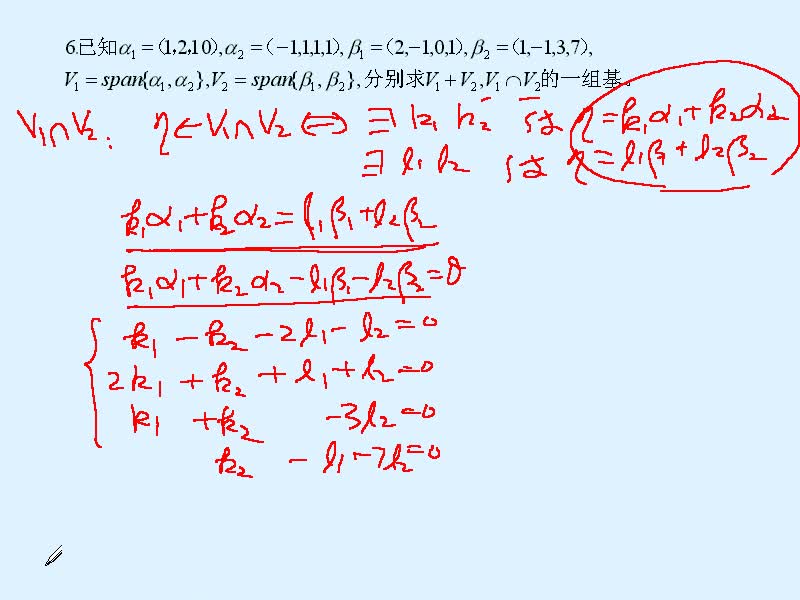 6.已知α₁ =(1,2,10),α₂ =(−1,1,1,1),β₁ =(2,−1,0,1),β₂ =(1,−1,3,7),
V₁ = span{α₁,α₂},V₂ = span{β₁,β₂},分别求V₁+V₂,V₁∩V₂的一组基。
V₁∩V₂: η∈V₁∩V₂ ⇔ ∃ k₁ k₂ st η=k₁α₁+k₂α₂
∃ l₁ l₂ st η=l₁β₁+l₂β₂
k₁α₁+k₂α₂=l₁β₁+l₂β₂
k₁α₁+k₂α₂−l₁β₁−l₂β₂=θ
k₁−k₂−2l₁−l₂=0
2k₁+k₂+l₁+l₂=0
k₁+k₂ −3l₂=0
k₂ −l₁−7l₂=0